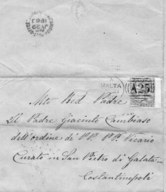 MALTA
A25
Mto Revd Padre
Il Padre Giacinto Cambiaso
dell'ordine de' PP. PP. Vicario
Curato in San Pietro di Galata
Costantinopoli